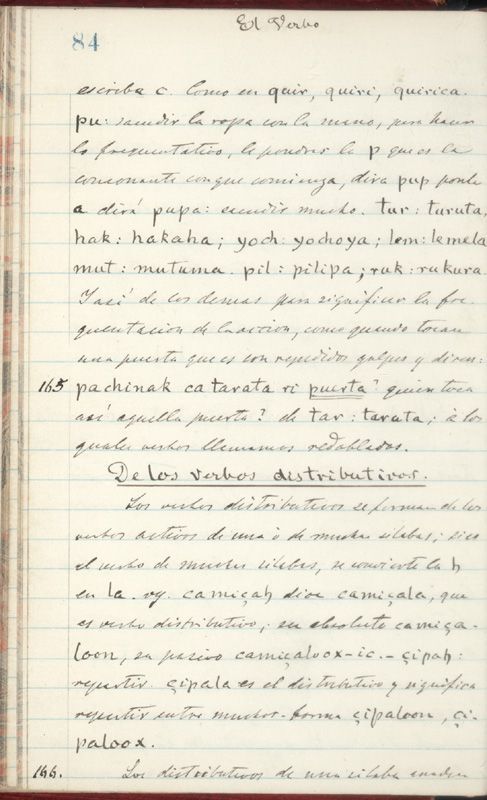 El Verbo
84
escriba c. Como en quir, quiri, quirica.
pu: sacudir la ropa con la mano, para hacer
lo frequentativo, le pondras la p que es la
consonante con que comienza, dira pup ponle
a dirá pupa: sacudir mucho. tur: turuta,
hak: hakaha; yoch: yochoya; lem: lemela
mut: mutuma. pil: pilipa; ruk: rukura.
Y asi de los demas para significar la fre-
quentacion de la accion, como quando tocan
una puerta que es con repetidos golpes y dicen:
165 pachinak catarata ri puerta? quien toca
asi aquella puerta? de tar: tarata; á los
quales verbos llamamos redoblados.
De los verbos distributivos.
Los verbos distributivos se forman de los
verbos activos de una ó de muchas silabas; si es
el verbo de muchas silabas, se convierte la h
en la. vg. camiçah dice camiçala, que
es verbo distributivo; su absoluto camiça-
loon, su pasivo camiçaloox-ic. - çipah:
repartir. çipala es el distributivo y significa
repartir entre muchos. forma çipaloon, çi-
paloox.
166. Los distributivos de una silaba